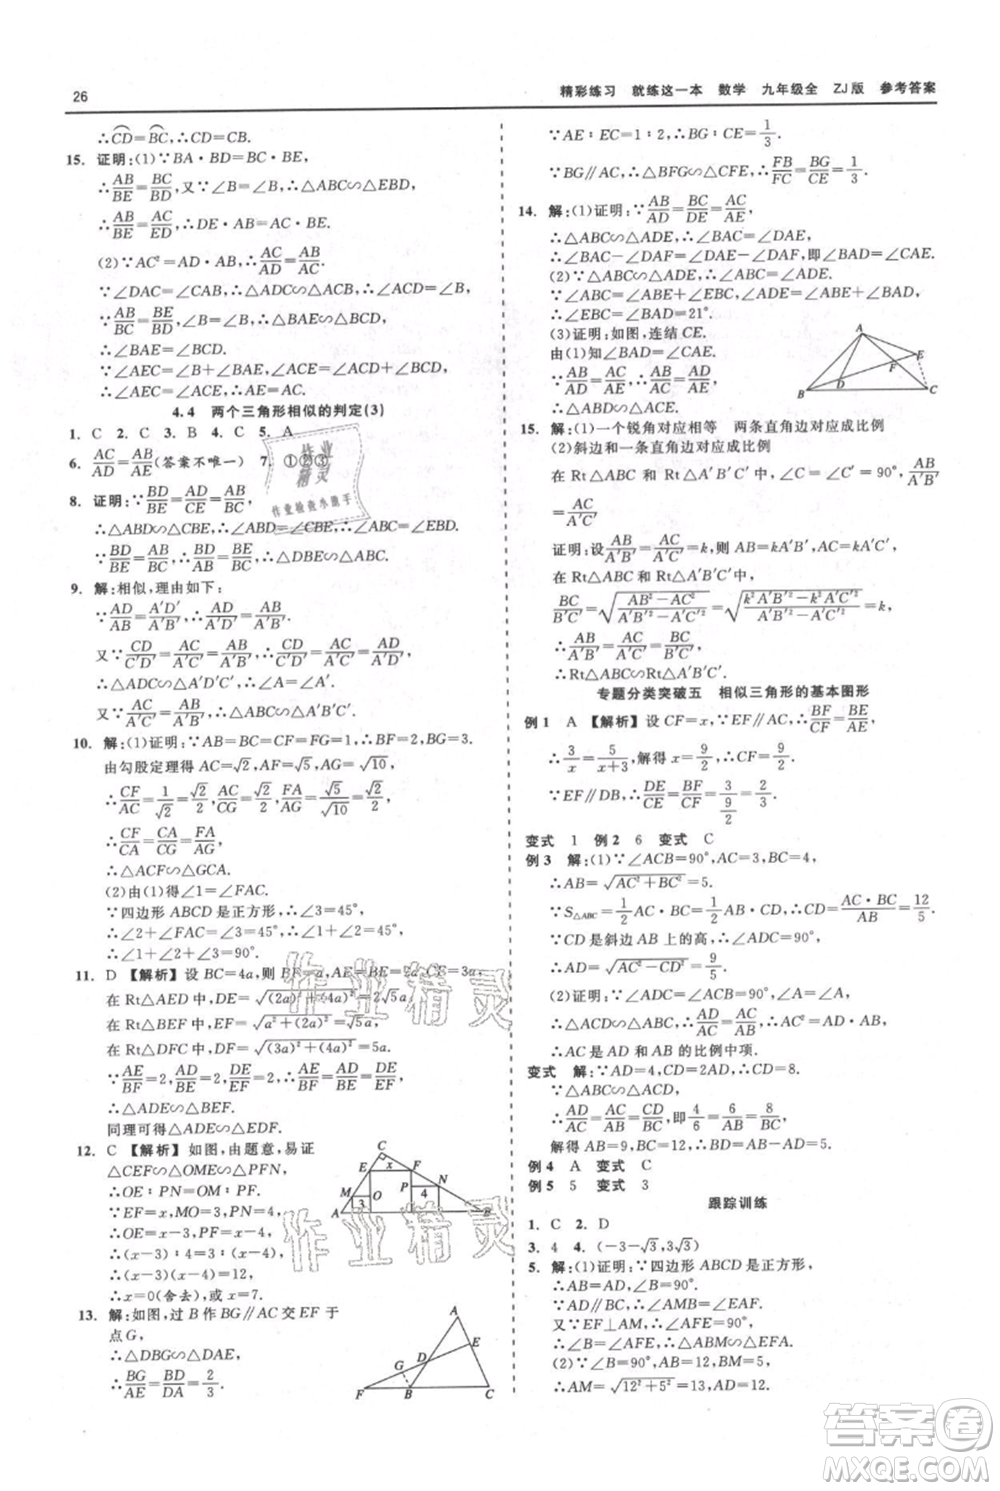 26
精彩练习 就练这一本 数学 九年级全 ZJ版 参考答案
∴CD=BC,∴CD=BC.
15. 证明:(1)∵BA·BD=BC·BE,
∴AB/BE=BC/BD,又∵∠B=∠B,∴△ABC∽△EBD,
∴AB/BE=AC/ED,∴DE·AB=AC·BE.
(2)∵AC²=AD·AB,∴AC/AD=AB/AC.
∵∠DAC=∠CAB,∴△ADC∽△ACB,
∴∠ACD=∠B.由(1)知△ABC∽△EBD,
∴AB/BC=BE/BD,∠B=∠B,∴△BAE∽△BCD,
∴∠BAE=∠BCD.
∵∠AEC=∠B+∠BAE,∠ACE=∠ACD+∠BCD,
∴∠AEC=∠ACE,∴AE=AC.
4.4 两个三角形相似的判定(3)
1. C 2. C 3. B 4. C 5. A
6. AC/AD=AB/AE(答案不唯一) 7. ①②③
8. 证明:∵BD/AB=BE/BC=DE/AC,
∴△ABC∽△DBE,∴∠ABC=∠DBE,∴∠ABD=∠CBE.
∵BD/AB=BE/BC,∴BD/BE=AB/BC,∴△ABD∽△CBE.
9. 解:相似,理由如下:
∵AD/AB=A′D′/A′B′,∴AD/A′D′=AB/A′B′.
又∵CD/C′D′=AC/A′C′=AB/A′B′,∴CD/C′D′=AC/A′C′=AD/A′D′,
∴△ADC∽△A′D′C′,∴∠A=∠A′.
又∵AC/A′C′=AB/A′B′,∴△ABC∽△A′B′C′.
10. 解:(1)证明:∵AB=BC=CF=FG=1,∴BG=3.
由勾股定理得AC=√2,AF=√5,AG=√10,
∴CF/AC=1/√2=√2/2,CA/CG=√2/2,FA/AG=√5/√10=√2/2,
∴CF/CA=CA/CG=FA/AG,
∴△ACF∽△GCA.
(2)由(1)得∠1=∠FAC.
∵四边形ABCD是正方形,∴∠3=45°,
∴∠2+∠FAC=∠3=45°,
∴∠1+∠2=45°.
11. D 【解析】设BC=4a,则BF=a,AE=BE=2a,CF=3a,
在Rt△AED中,DE=√(2a)²+(4a)²=2√5a,
在Rt△BEF中,EF=√a²+(2a)²=√5a,
在Rt△DFC中,DF=√(3a)²+(4a)²=5a.
∵AE/BF=2,AD/BE=2,DE/EF=2,
∴△ADE∽△BEF.
同理可得△ADE∽△EDF.
12. C 【解析】如图,由题意,易证
△CEF∽△OME∽△PFN,
∴OE∶PN=OM∶PF.
∵EF=x,MO=3,PN=4,
∴OE=x-3,PF=x-4,
∴(x-3)∶4=3∶(x-4),
∴(x-3)(x-4)=12,
∴x=0(舍去),或x=7.
C E x F M 3 O P 4 N A B
13. 解:如图,过B作BG∥AC交EF于
点G,
∴△DBG∽△DAE,
∴BG/AE=BD/DA=2/3.
A E G D F B C
∵AE∶EC=1∶2,∴BG∶CE=1/3.
∵BG∥AC,∴△BFG∽△CFE,∴FB/FC=BG/CE=1/3.
14. 解:(1)证明:∵AB/AD=BC/DE=AC/AE,
∴△ABC∽△ADE,∴∠BAC=∠DAE,
∴∠BAC-∠DAF=∠DAE-∠DAF,即∠BAE=∠CAF.
(2)证明:∵△ABC∽△ADE,∴∠ABC=∠ADE.
∵∠ABC=∠ABE+∠EBC,∠ADE=∠ABE+∠BAD,
∴∠EBC=∠BAD=21°.
(3)证明:如图,连结CE.
由(1)知∠BAD=∠CAE.
∵AB/AD=AC/AE,∴AB/AC=AD/AE,
∴△ABD∽△ACE.
A E F D B C
15. 解:(1)一个锐角对应相等 两条直角边对应成比例
(2)斜边和一条直角边对应成比例
在Rt△ABC和Rt△A′B′C′中,∠C=∠C′=90°,AB/A′B′
=AC/A′C′,
∴Rt△ABC∽Rt△A′B′C′.
证明:设AB/A′B′=AC/A′C′=k,则AB=kA′B′,AC=kA′C′.
在Rt△ABC和Rt△A′B′C′中,
BC/B′C′=√AB²-AC²/√A′B′²-A′C′²=√k²A′B′²-k²A′C′²/√A′B′²-A′C′²=k,
∴AB/A′B′=AC/A′C′=BC/B′C′,
∴Rt△ABC∽Rt△A′B′C′.
专题分类突破五 相似三角形的基本图形
例1 A 【解析】设CF=x,∵EF∥AC,∴BF/CF=BE/AE,
∴3/x=5/(x+3),解得x=9/2,∴CF=9/2.
∵EF∥DB,∴DE/CE=BF/CF=3/(9/2)=2/3.
变式 1 例2 6 变式 C
例3 解:(1)∵∠ACB=90°,AC=3,BC=4,
∴AB=√AC²+BC²=5.
∵S△ABC=1/2AC·BC=1/2AB·CD,∴CD=AC·BC/AB=12/5.
∵CD是斜边AB上的高,∴CD=12/5.
(2)证明:∵∠ADC=∠ACB=90°,∠A=∠A,
∴△ADC∽△ACB,∴AC/AB=AD/AC,∴AC²=AD·AB,
∴AC是AD和AB的比例中项.
变式 解:∵AD=4,CD=2AD,∴CD=8.
∵△ABC∽△ACD,
∴AC/AD=AB/AC=BC/CD,即6/4=AB/6=BC/8,
解得AB=9,BC=12,∴BD=5.
例4 A 变式 C
例5 5 变式 3
跟踪训练
1. C 2. D
3. 4 4. (-3-√3,3√3)
5. 解:(1)证明:∵四边形ABCD是正方形,
∴AD∥BC,∠B=90°,
∴∠AMB=∠EAF.
又∵EF⊥AM,
∴∠AFE=∠B=90°,∴△ABM∽△EFA.
(2)∵∠B=90°,AB=12,BM=5,
∴AM=√12²+5²=13,AD=12.
作业精灵
作业检查小能手
作业精灵
作业精灵
答案圈
MXQE.COM